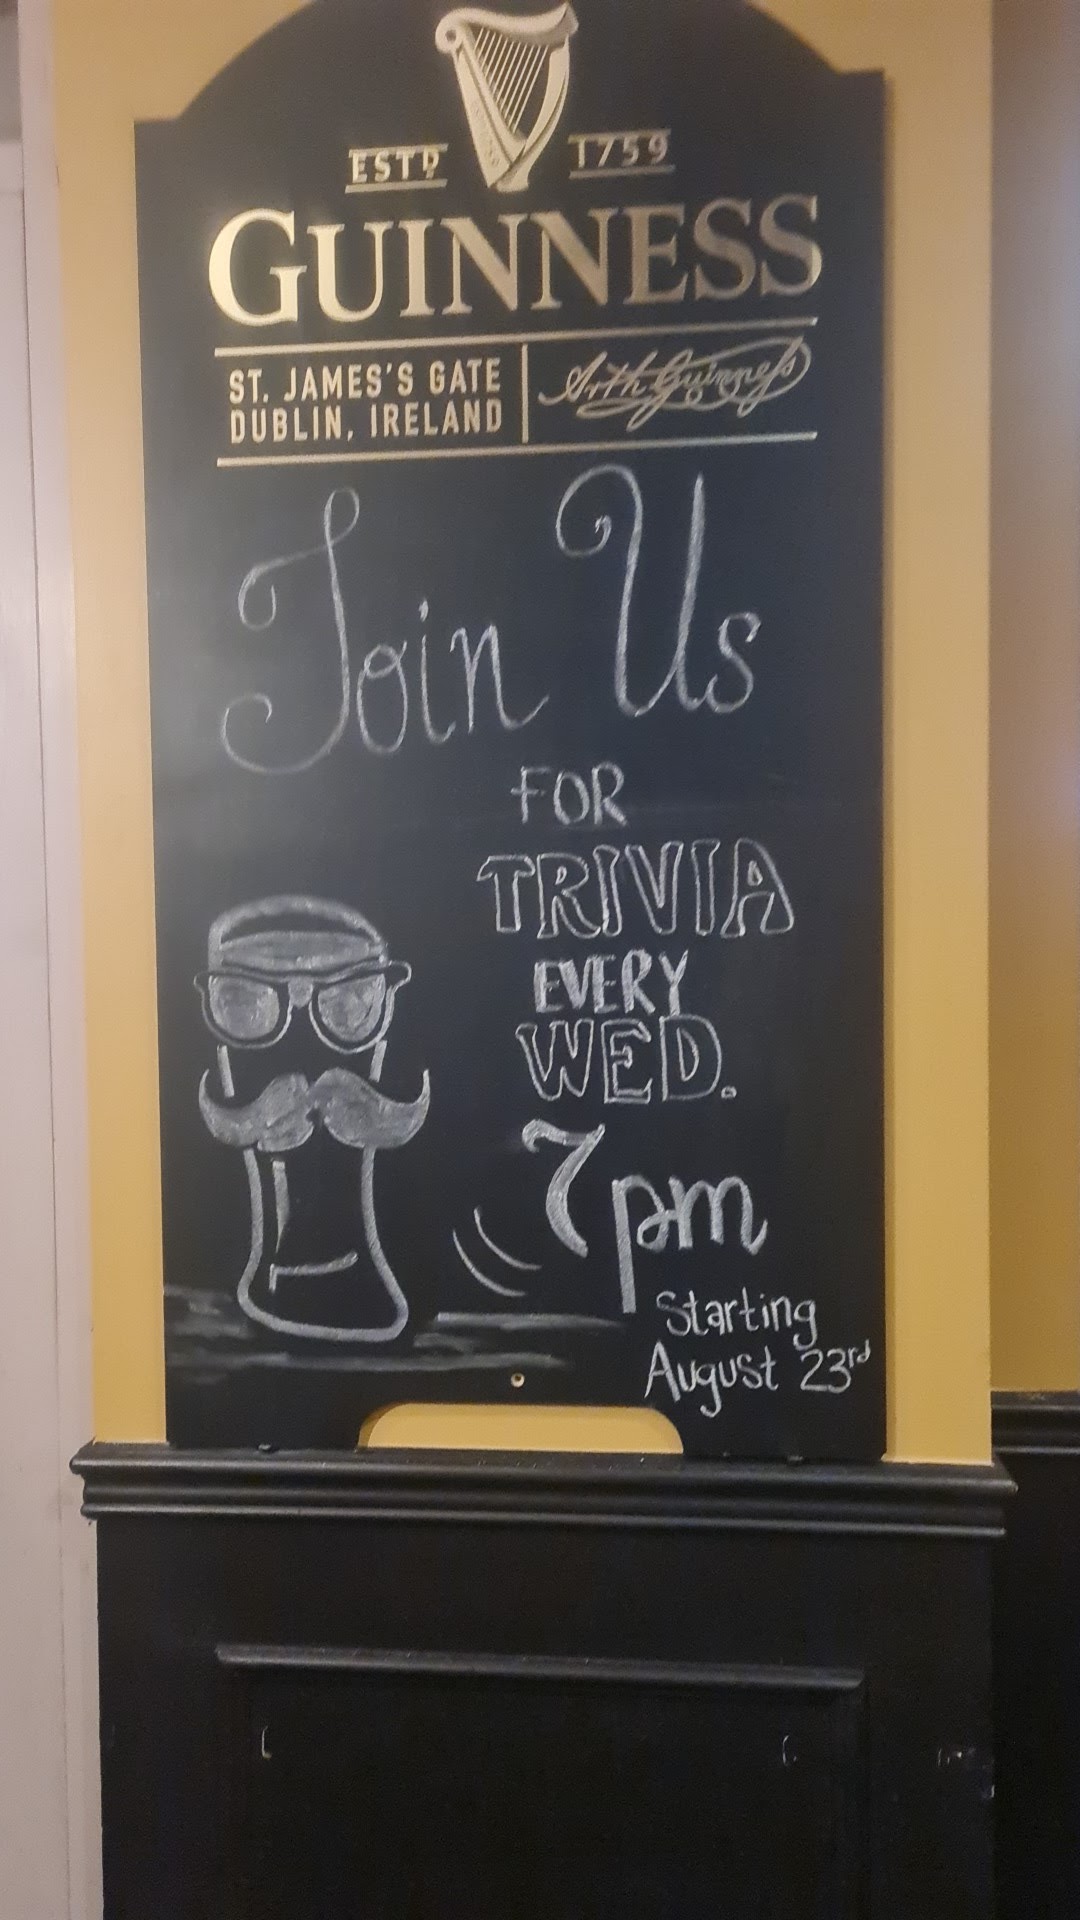 ESTD 1759
GUINNESS
ST. JAMES'S GATE
DUBLIN, IRELAND
Arth Guinness
Join Us
FOR
TRIVIA
EVERY
WED.
7pm
Starting
August 23rd